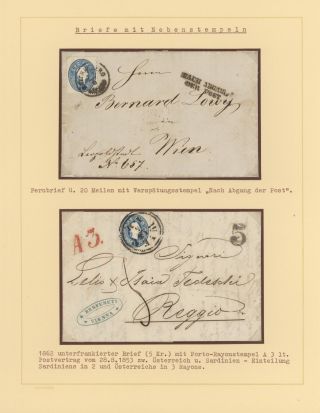 Briefe mit Nebenstempeln
Herrn
NACH ABGANG
DER POST
Bernard Löwy
in
Leopoldstadt
Wien
No 657.
Fernbrief ü. 20 Meilen mit Verspätungsstempel „Nach Abgang der Post".
WIEN
A3.
5
Signori
Lelio & Isaia Tedeschi
Reggio
VIENNA
1862 unterfrankierter Brief (5 Kr.) mit Porto-Rayonstempel A 3 lt.
Postvertrag vom 28.8.1853 zw. Österreich u. Sardinien - Einteilung
Sardiniens in 2 und Österreichs in 3 Rayons.